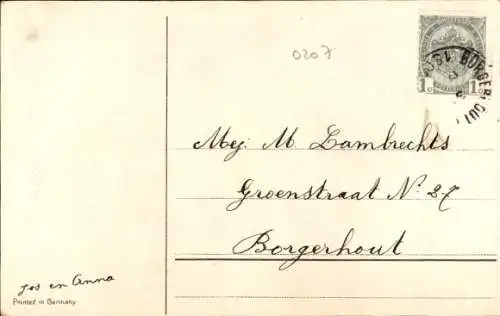 0207
BORGERHOUT
1c 1c
Mej. M. Lambrechts
Groenstraat No. 27
Borgerhout
Jos en Anna
Printed in Germany